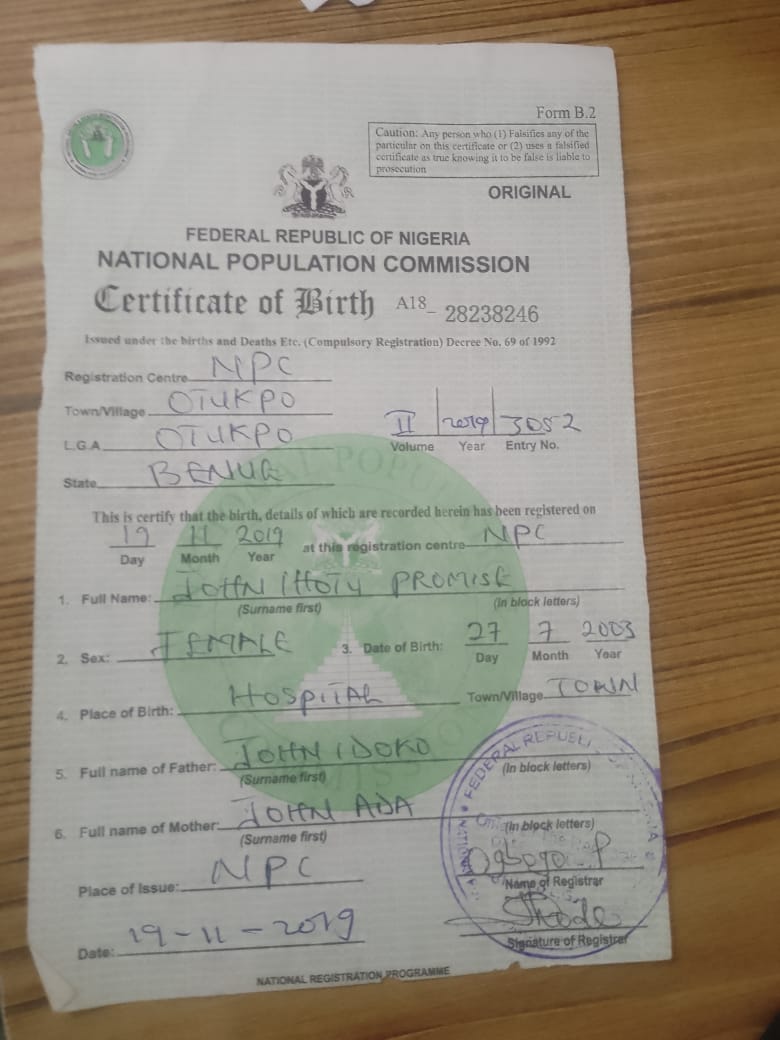 Form B.2
Caution: Any person who (1) Falsifies any of the
particular on this certificate or (2) uses a falsified
certificate as true knowing it to be false is liable to
prosecution
ORIGINAL
FEDERAL REPUBLIC OF NIGERIA
NATIONAL POPULATION COMMISSION
Certificate of Birth A18_ 28238246
Issued under the births and Deaths Etc. (Compulsory Registration) Decree No. 69 of 1992
Registration Centre NPC
Town/Village OTUKPO
L.G.A. OTUKPO
II 2019 3052
Volume Year Entry No.
State BENUE
This is certify that the birth, details of which are recorded herein has been registered on
19 11 2019 at this registration centre NPC
Day Month Year
1. Full Name: JOHN IHOTU PROMISE
(Surname first) (in block letters)
2. Sex: FEMALE 3. Date of Birth: 27 7 2003
Day Month Year
4. Place of Birth: HOSPITAL Town/Village TOWN
5. Full name of Father: JOHN IDOKO
(Surname first) (In block letters)
6. Full name of Mother: JOHN ADA
(Surname first) (In block letters)
Place of Issue: NPC
Name of Registrar
Date: 19-11-2019
Signature of Registrar
NATIONAL REGISTRATION PROGRAMME